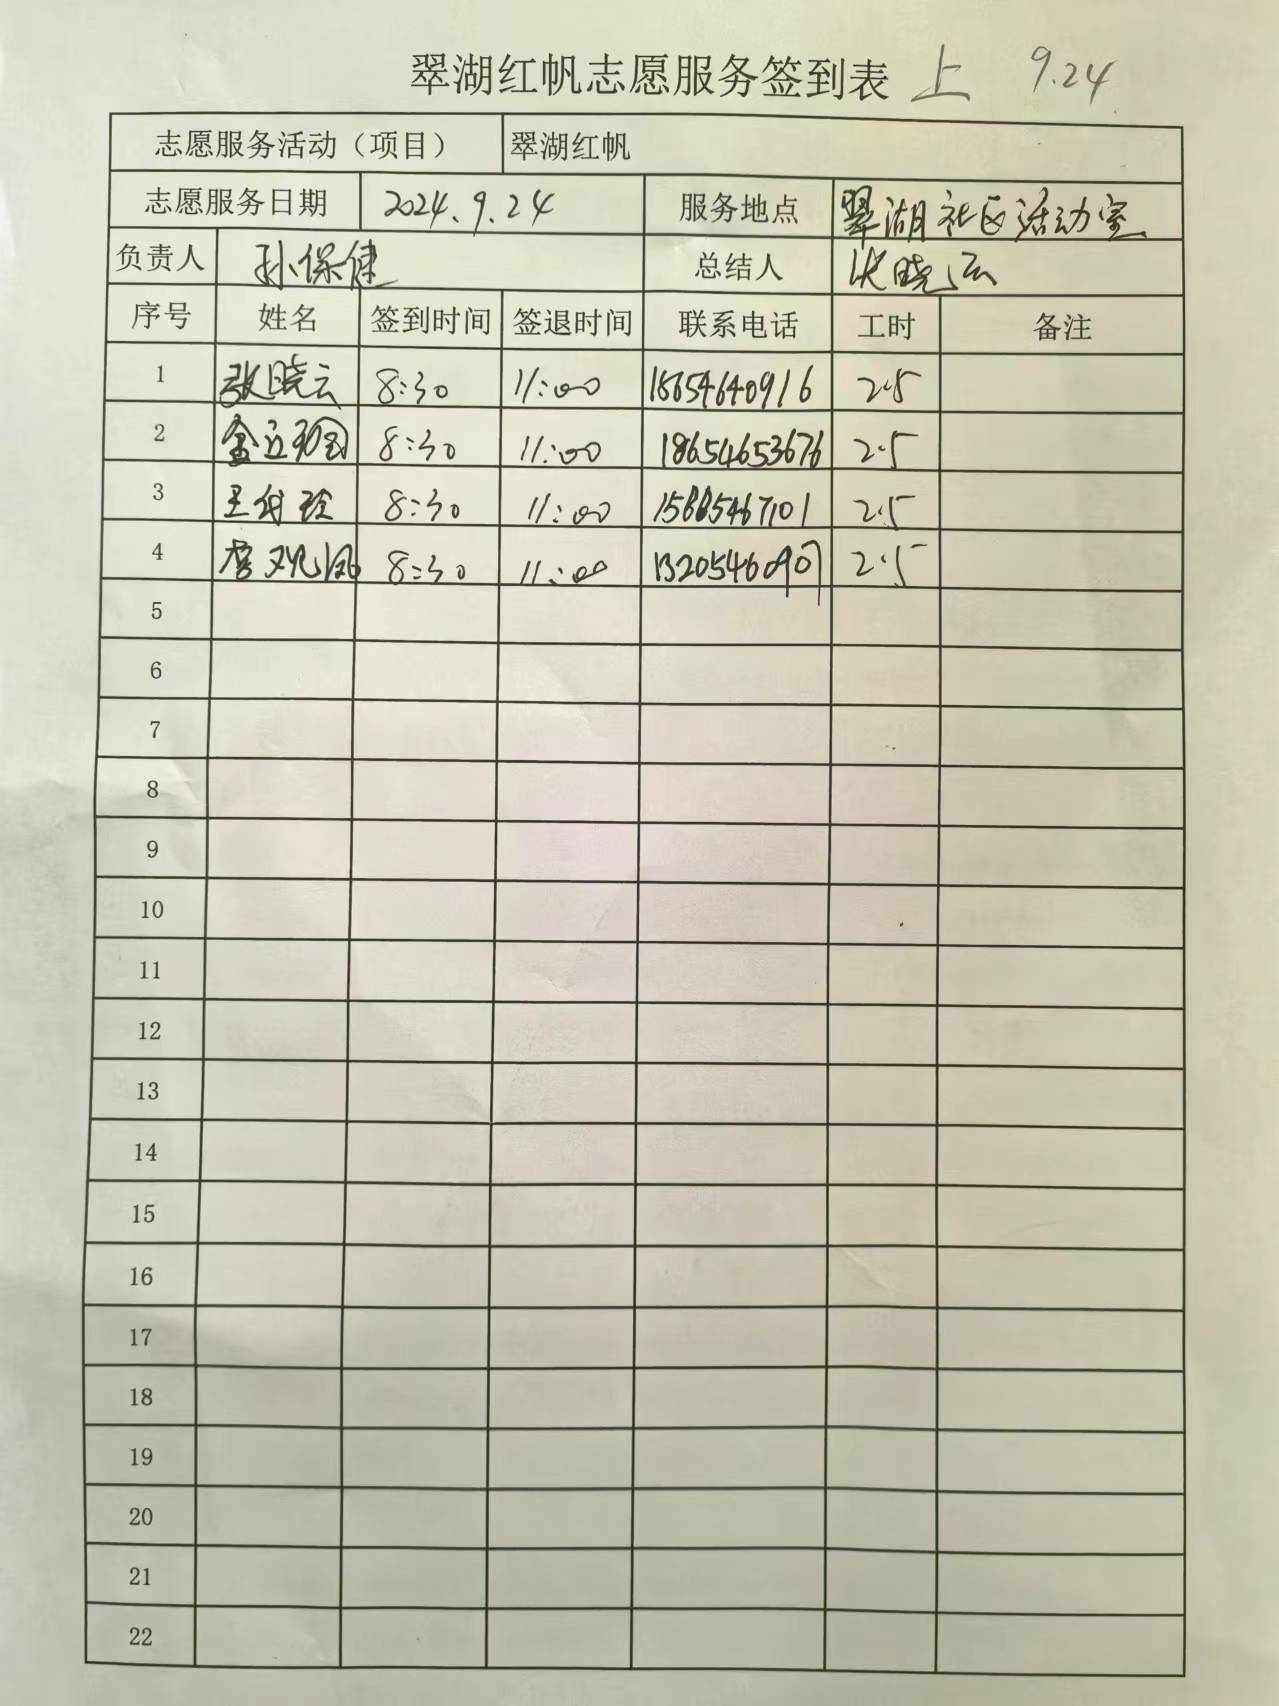 翠湖红帆志愿服务签到表 上 9.24
志愿服务活动（项目） 翠湖红帆
志愿服务日期 2024.9.24 服务地点 翠湖社区活动室
负责人 孙保健 总结人 张晓云
序号 姓名 签到时间 签退时间 联系电话 工时 备注
1 张晓云 8:30 11:00 18654640916 2.5
2 8:30 11:00 18654653676 2.5
3 8:30 11:00 2.5
4 8:30 11:00 2.5
5
6
7
8
9
10
11
12
13
14
15
16
17
18
19
20
21
22